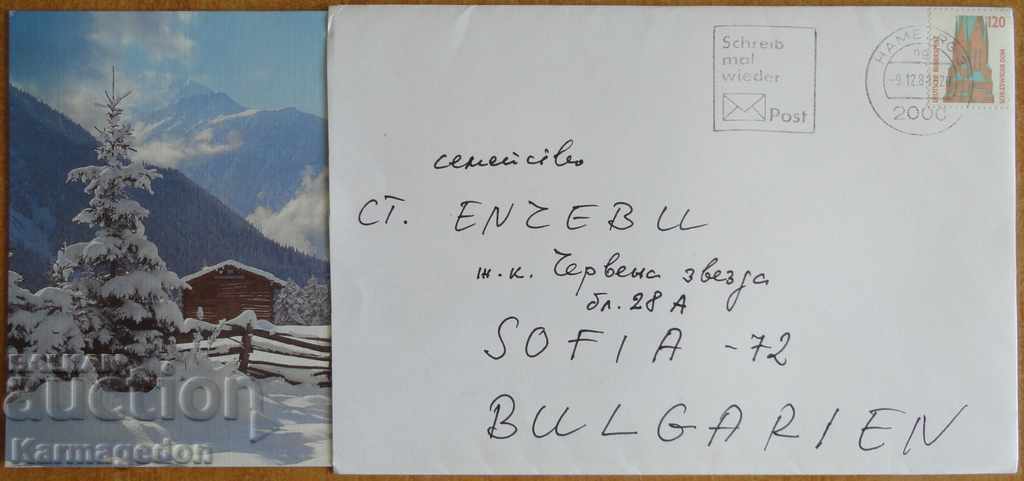 Schreib
mal
wieder
Post
HAMBURG
-9.12.8
2000
120
DEUTSCHE BUNDESPOST
SCHLESWIGER DOM
семейство
СТ. ЕНЧЕВИ
ж.к. Червена звезда
бл. 28 А
SOFIA - 72
BULGARIEN
BALKAN
auction
Karmagedon